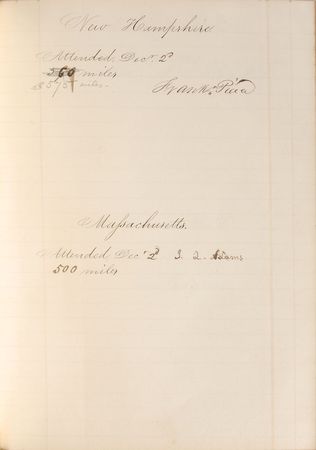 New Hampshire
Attended Decr. 2d
560 miles
575 miles
Frankn. Pierce
Massachusetts.
Attended Decr 2d J. Q. Adams
500 miles